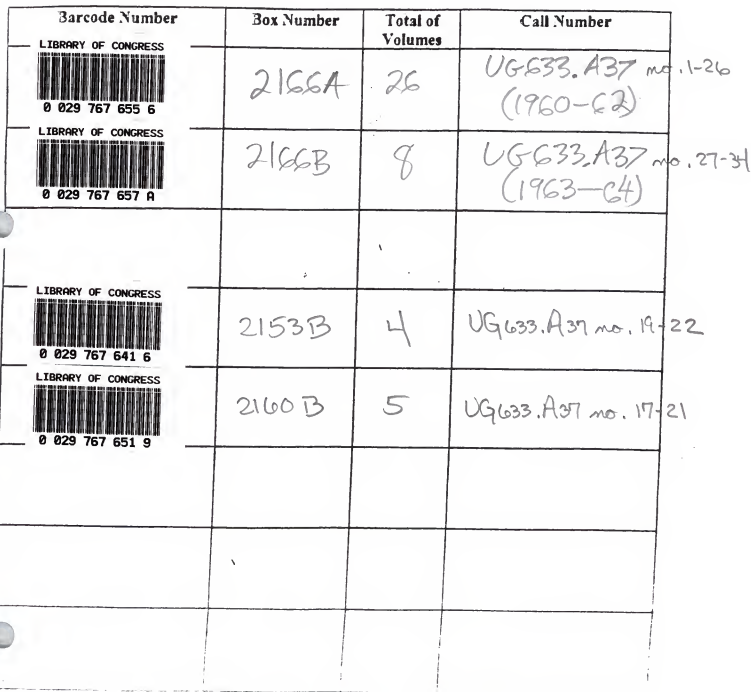 Barcode Number Box Number Total of Volumes Call Number
LIBRARY OF CONGRESS
0 029 767 655 6
2166A 26 UG633.A37 no.1-26
(1960-62)
LIBRARY OF CONGRESS
0 029 767 657 A
2166B 8 UG633.A37 no.27-34
(1963-64)
LIBRARY OF CONGRESS
0 029 767 641 6
2153B 4 UG633.A37 no. 19-22
LIBRARY OF CONGRESS
0 029 767 651 9
2160B 5 UG633.A37 no. 17-21